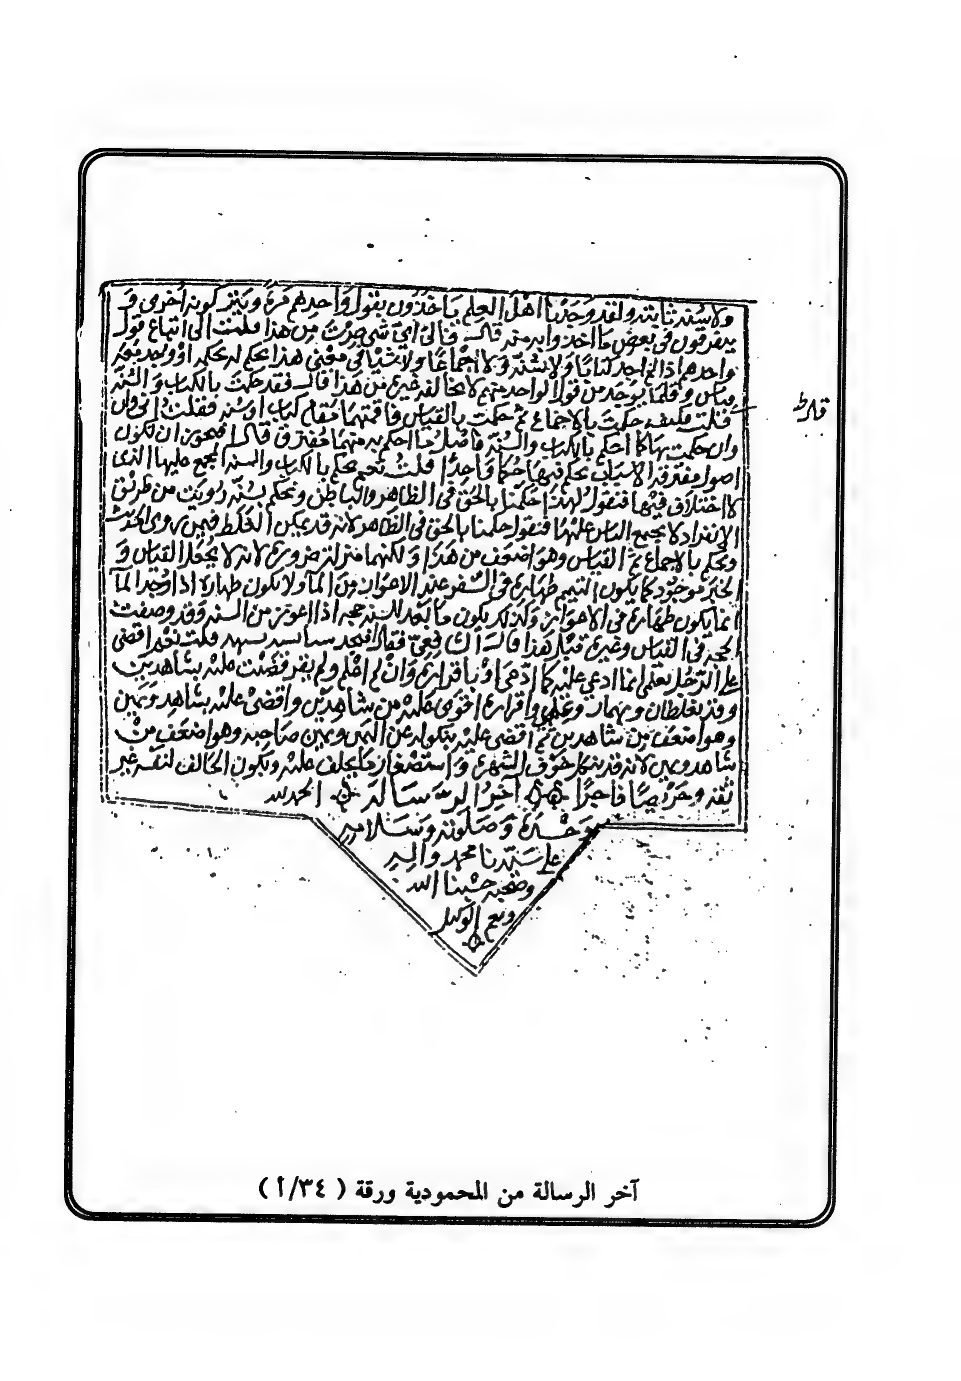 ولا سنة ثابتة ولقد وجدنا اهل العلم ياخذون بقول واحدهم مرة ويتركونه اخرى و
يتفرقون في بعض ما اخذوا به منه قال فالى اي شي صرت من هذا قلت الى اتباع قول
واحدهم اذا لم اجد كتابا ولا سنة ولا اجماعا ولا شيا في معنى هذا يحكم له بحكمه او وجد معه
قياس وقلما يوجد من قول الواحد منهم لا يخالفه غيره من هذا قال فقد حكمت بالكتاب والسنة
قلت فكيف حكمت بالاجماع ثم حكمت بالقياس فاقمتهما مقام كتاب او سنة فقلت اني وان
قال
وان حكمت بها كما احكم بالكتاب والسنة فاصل ما احكم به منهما مفترق قال افيجوز ان تكون
اصول مفترقة الاسباب يحكم فيها حكما واحدا قلت نعم يحكم بالكتاب والسنة المجمع عليها الذى
لا اختلاف فيها فنقول لهذا حكمنا بالحق في الظاهر والباطن ونحكم بسنة رويت من طريق
الانفراد لا يجمع الناس عليها فنقول حكمنا بالحق في الظاهر لانه قد يمكن الغلط فيمن روى الحديث
ونحكم بالاجماع ثم القياس وهو اضعف من هذا ولكنها منزلة ضرورة لانه لا يحل القياس و
الخبر موجود كما يكون التيمم طهارة في السفر عند الاعواز من الما ولا يكون طهارة اذا وجد الما
انما يكون طهارة في الاعواز وكذلك يكون ما بعد السنة حجة اذا اعوز من السنة وقد وصفت
الحجة في القياس وغيره قبل هذا قال افتجد شيا تشبهه قلت نعم اقضى
على الرجل بعلمي انما ادعي عليه كما ادعى او باقراره وان لم اعلم ولم يقر قضيت عليه بشاهدين
وقد يغلطان ويهمان وعلمي واقراره اقوى عليه من شاهدين واقضي عليه بشاهد ويمين
وهو اضعف من شاهدين ثم اقضى عليه بنكوله عن اليمين ويمين صاحبه وهو اضعف من
شاهد ويمين لانه قد ينكل خوف الشهرة واستصغار ما يحلف عليه ويكون الحالف لنفسه غير
ثقة وحريصا فاجرا آخر الرسالة الحمد لله
وحده وصلوته وسلامه
على سيدنا محمد واله
وصحبه حسبنا الله
ونعم الوكيل
آخر الرسالة من المحمودية ورقة ( ٣٤/أ )